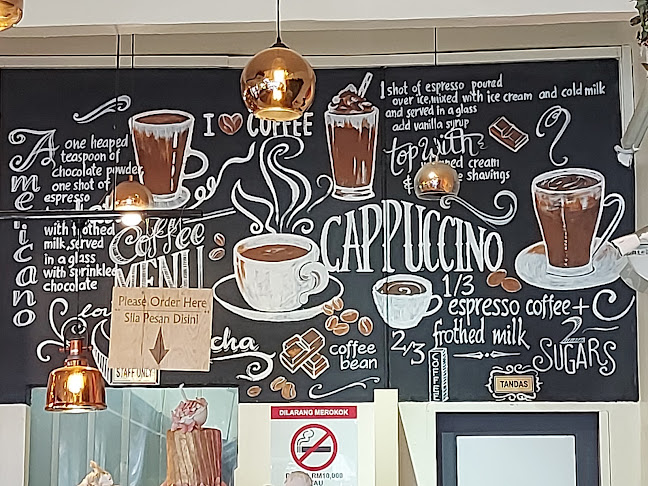 Americano
one heaped
teaspoon of
chocolate powder
one shot of
espresso
with frothed
milk, served
in a glass
with sprinkled
chocolate
I COFFEE
Coffee
MENU
Please Order Here
"Sila Pesan Disini"
STAFF ONLY
1 shot of espresso poured
over ice, mixed with ice cream and cold milk
and served in a glass
add vanilla syrup
top with
cream
& shavings
CAPPUCCINO
1/3
espresso coffee +
2/3 frothed milk
2
SUGARS
coffee
bean
COFFEE
TANDAS
DILARANG MEROKOK
RM10,000